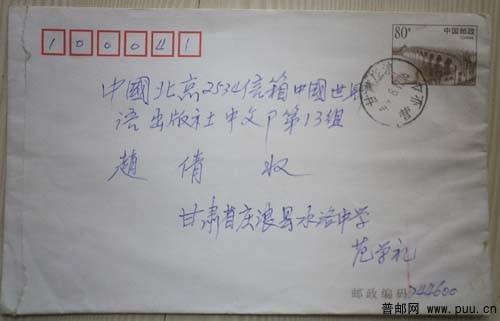 100041
80分
中国邮政
CHINA
中國北京2534信箱中國世界
语出版社中文P第13组
趙 倩 收
甘肃省庄浪县水洛中学
范学礼
邮政编码 744600
普邮网 www.puu.cn